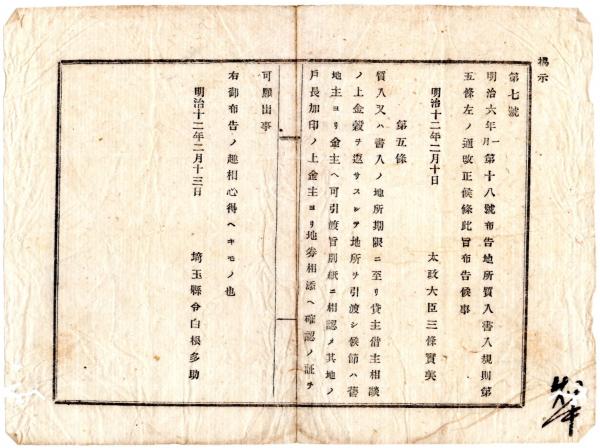 揭示
第七號
明治六年一月第十八號布告地所質入書入規則第
五條左ノ通改正候條此旨布告候事
明治十二年二月十日
太政大臣三條實美
第五條
質入又ハ書入ノ地所期限ニ至リ貸主借主相談
ノ上金穀ヲ返サスシテ地所ヲ引渡シ候節ハ舊
地主ヨリ金主ヘ可引渡旨別紙ニ相認メ其地ノ
戶長加印ノ上金主ヨリ地劵相添ヘ確認ノ証ヲ
可願出事
右御布告ノ趣相心得ヘキモノ也
明治十二年二月十三日
埼玉縣令白根多助